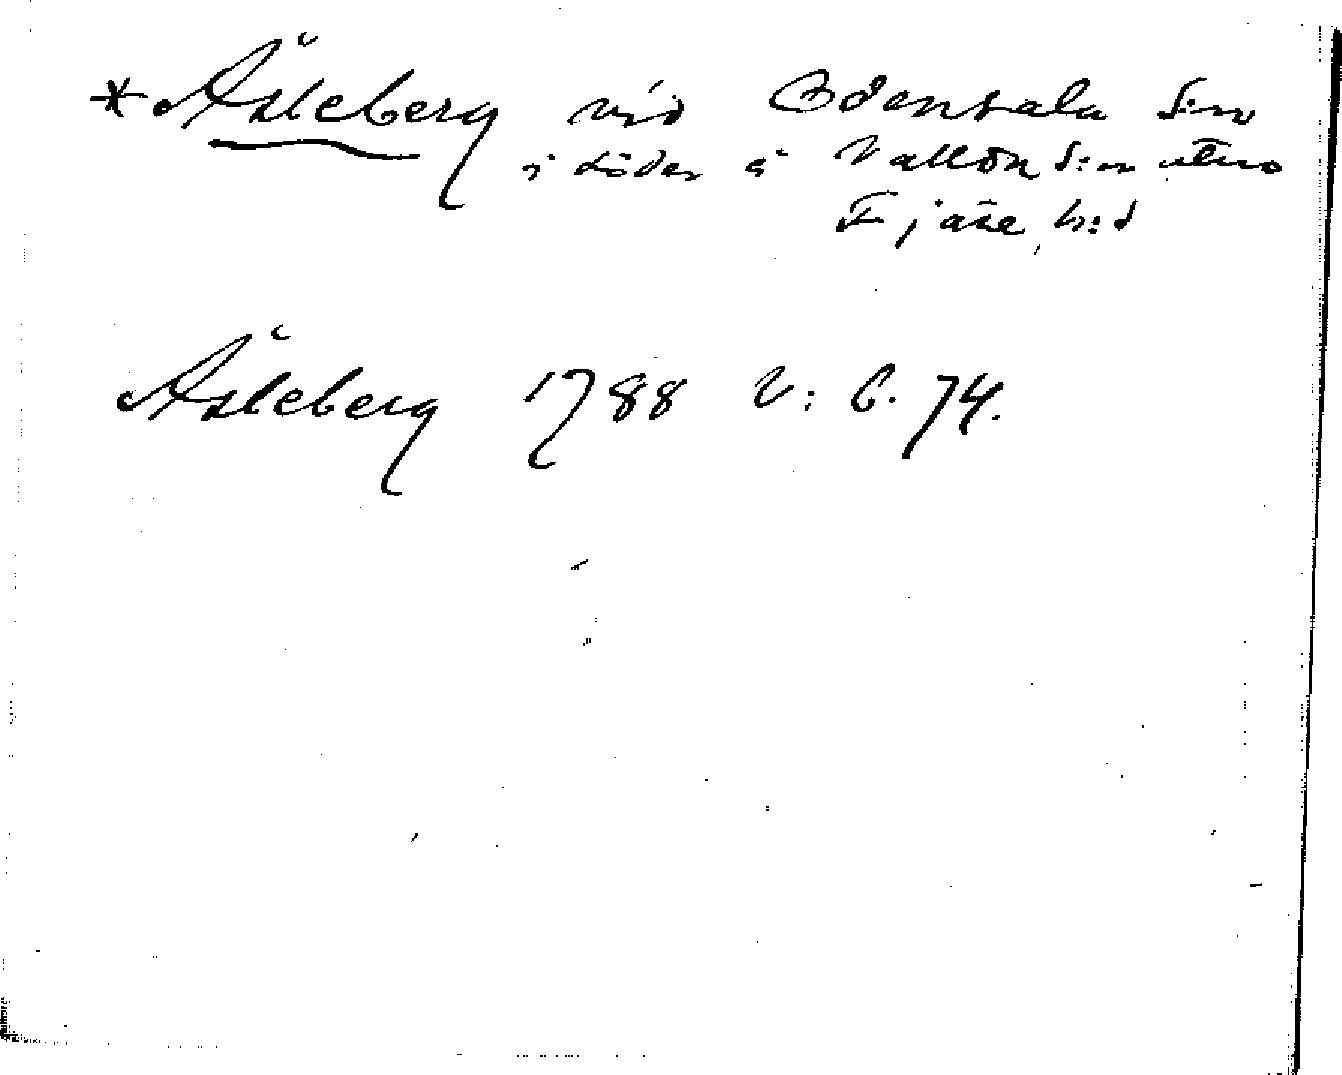 * Åsleberg vid Odensala S:n
i söder å Vallda S:n
Fjäre h:d
Åsleberg 1788 V: 6. 74.